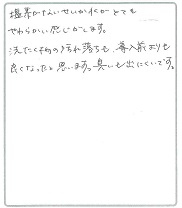 塩素がないせいかわくが とても
やわらかい感じがします。
洗たく物の汚れ落ちも、導入前よりも
良くなったと思います。臭いも出にくいです。